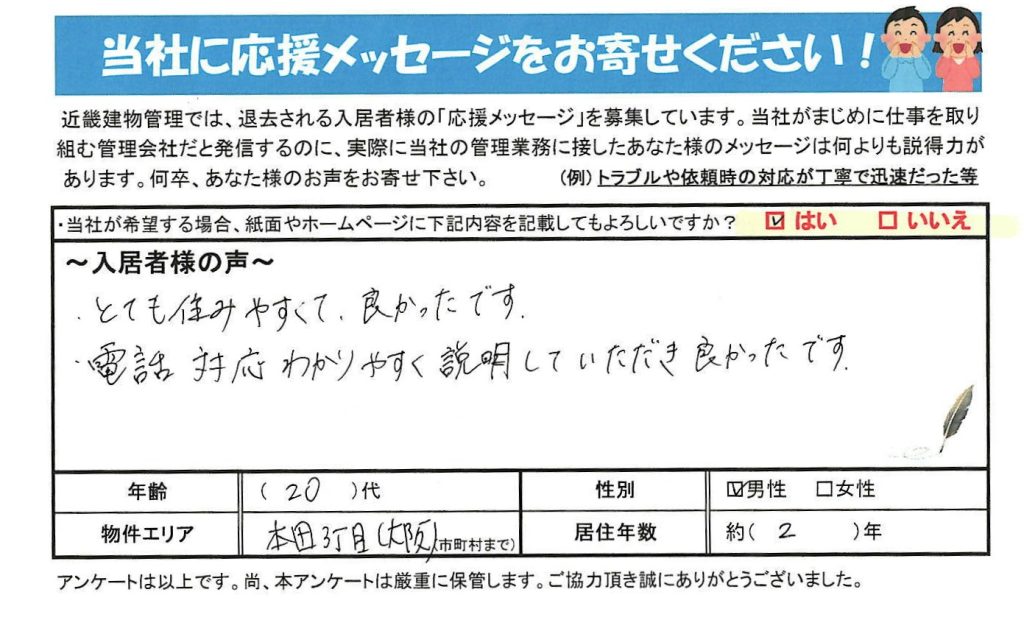 当社に応援メッセージをお寄せください！
近畿建物管理では、退去される入居者様の「応援メッセージ」を募集しています。当社がまじめに仕事を取り
組む管理会社だと発信するのに、実際に当社の管理業務に接したあなた様のメッセージは何よりも説得力が
あります。何卒、あなた様のお声をお寄せ下さい。　（例）トラブルや依頼時の対応が丁寧で迅速だった等
・当社が希望する場合、紙面やホームページに下記内容を記載してもよろしいですか？ ☑ はい □ いいえ
～入居者様の声～
・とても住みやすくて、良かったです。
・電話対応わかりやすく説明していただき良かったです。
年齢 （ 20 ）代 性別 ☑男性 □女性
物件エリア 本田3丁目(大阪)(市町村まで) 居住年数 約（ 2 ）年
アンケートは以上です。尚、本アンケートは厳重に保管します。ご協力頂き誠にありがとうございました。